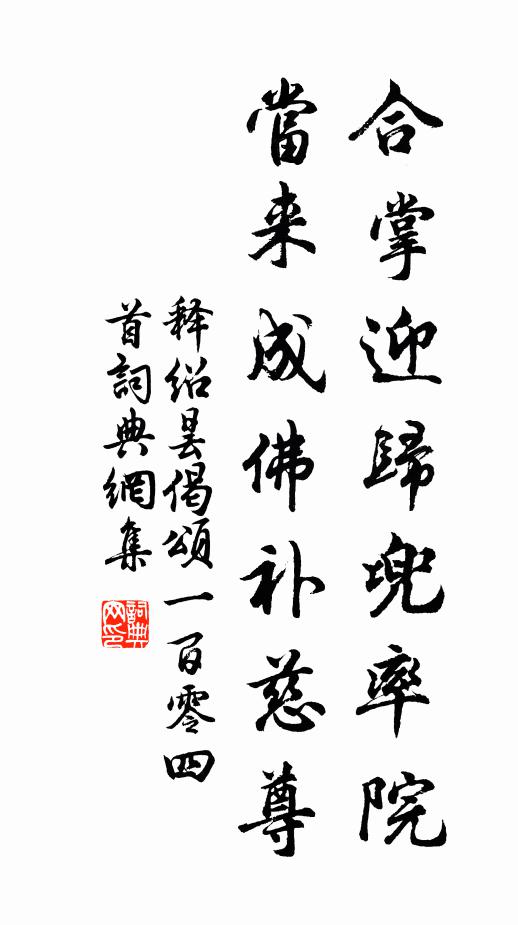 合掌迎歸兜率院
當来成佛补慈尊
释紹昙偈頌一百零四
首詞典網集
詞典网印